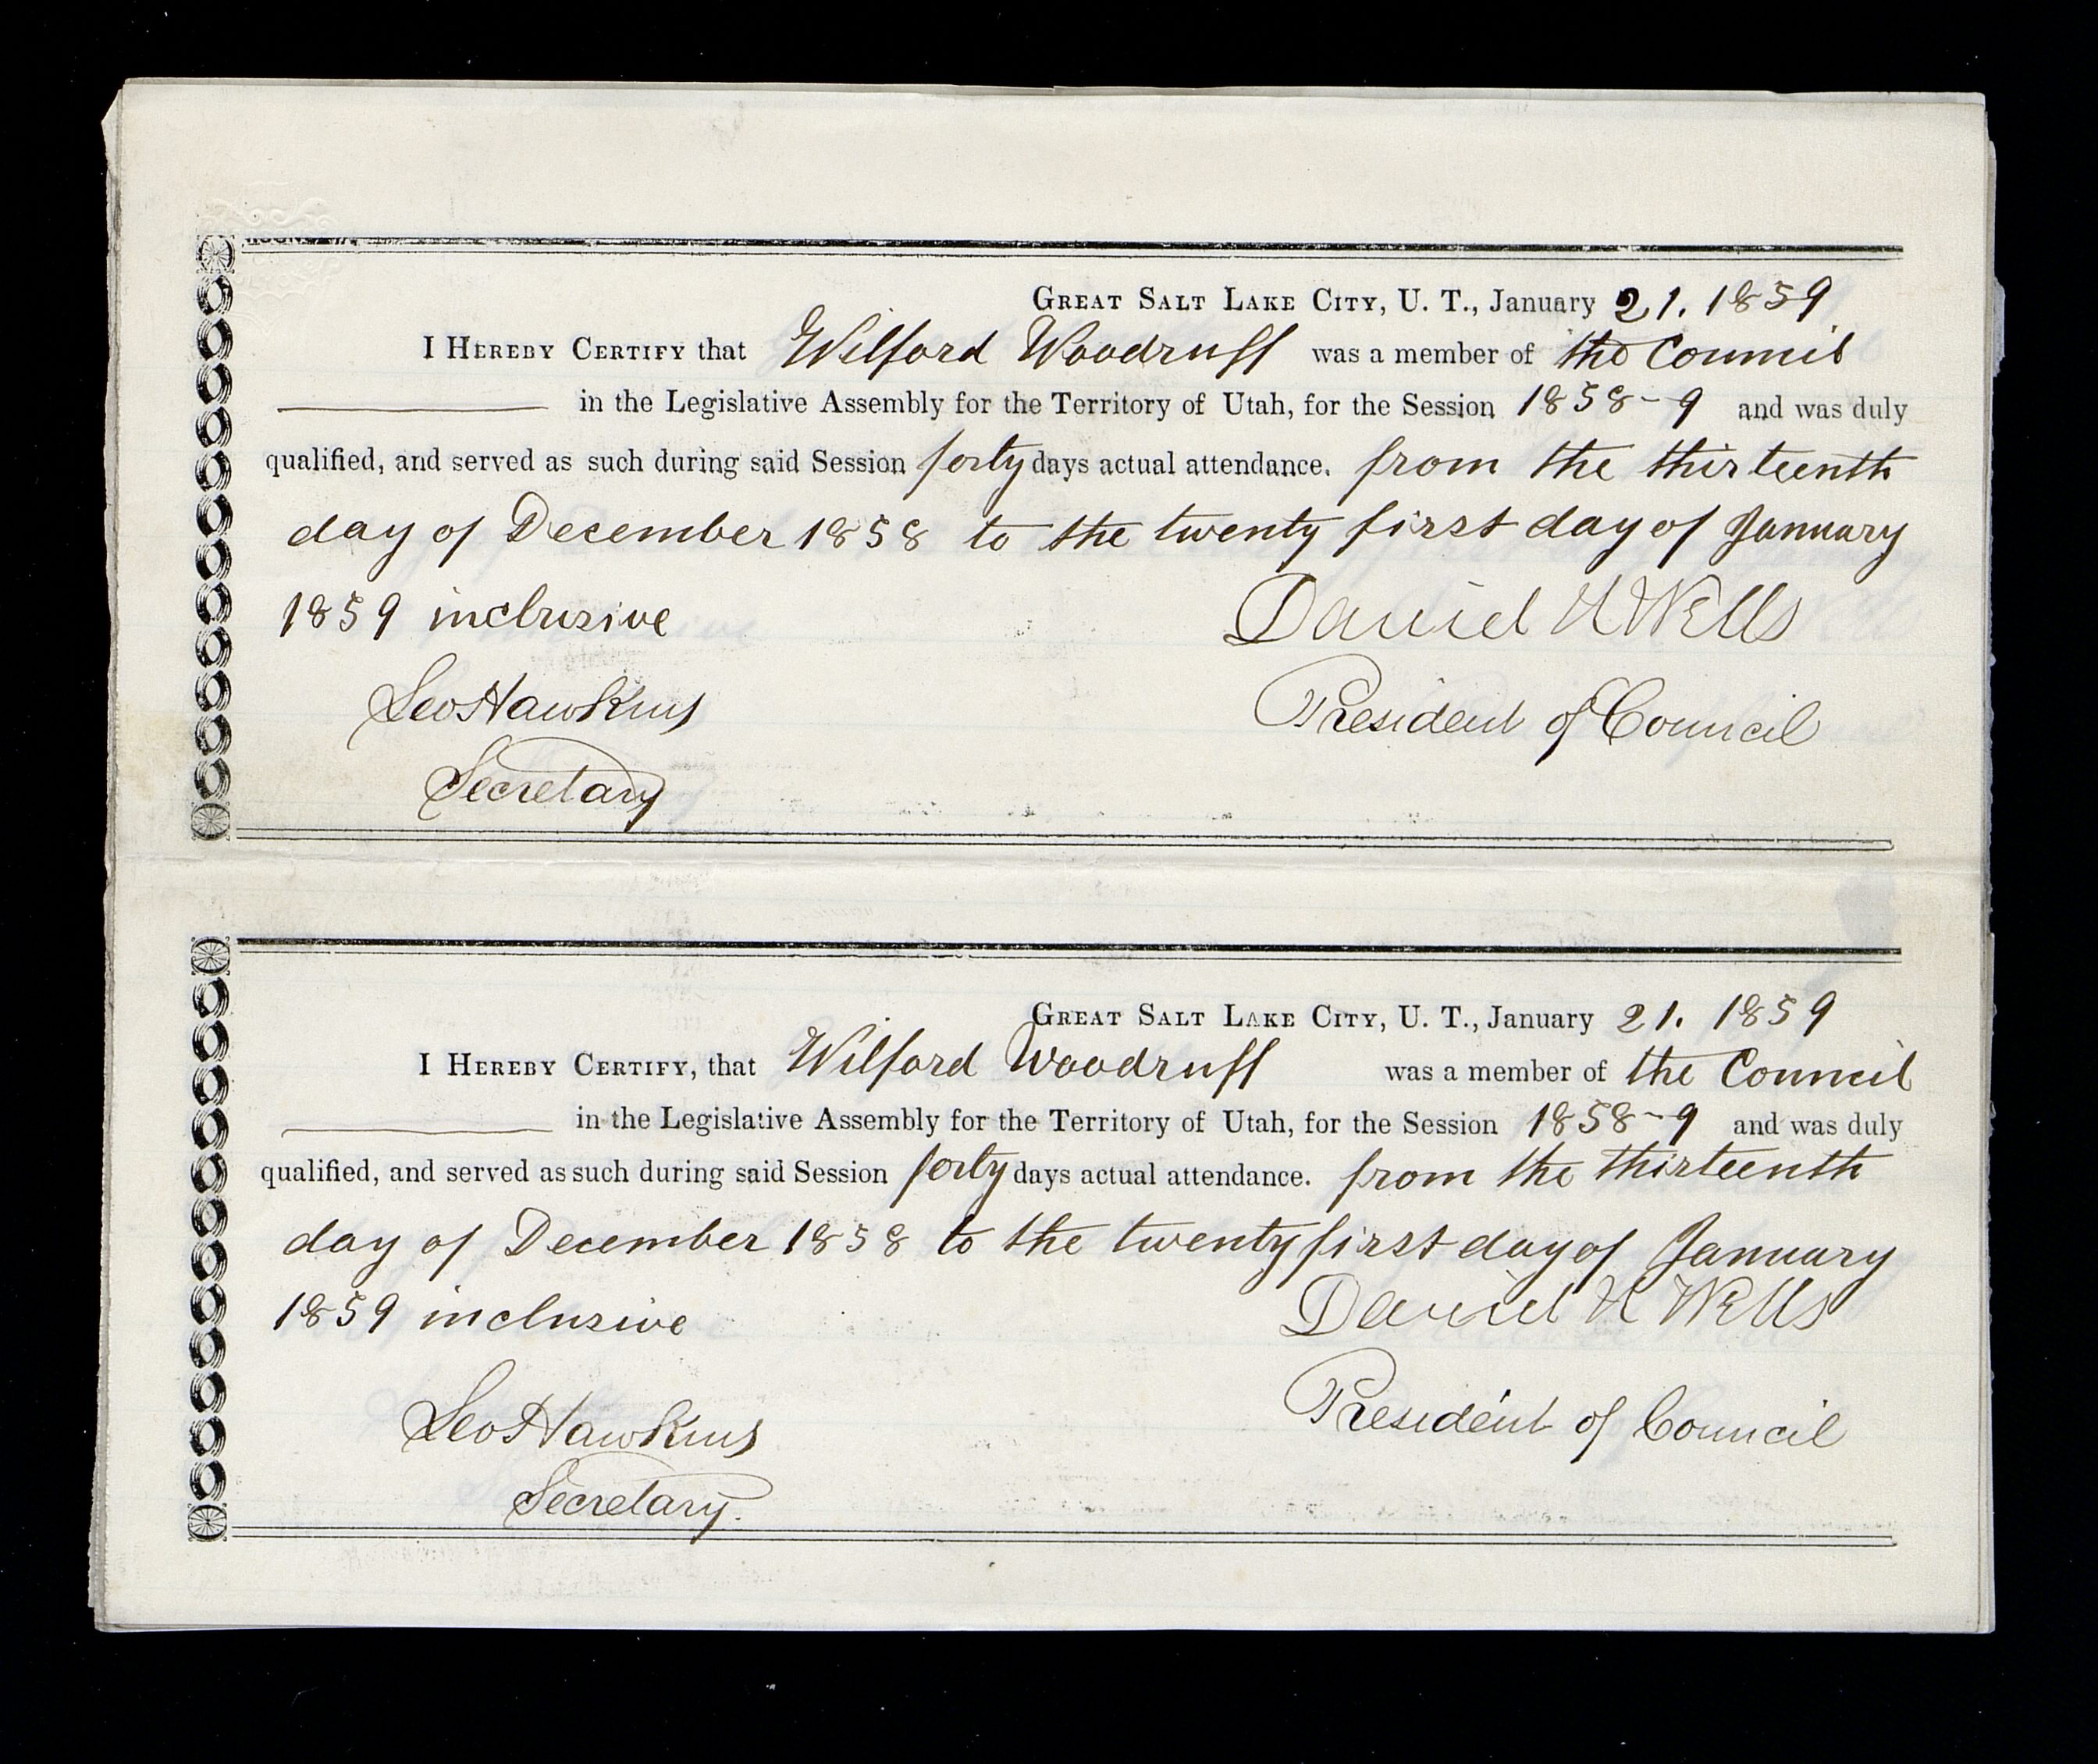 GREAT SALT LAKE CITY, U. T., January 21. 1859
I HEREBY CERTIFY that Wilford Woodruff was a member of the Council
in the Legislative Assembly for the Territory of Utah, for the Session 1858-9 and was duly
qualified, and served as such during said Session forty days actual attendance. from the thirteenth
day of December 1858 to the twenty first day of January
1859 inclusive
Daniel H Wells
Leo Hawkins
President of Council
Secretary
GREAT SALT LAKE CITY, U. T., January 21. 1859
I HEREBY CERTIFY, that Wilford Woodruff was a member of the Council
in the Legislative Assembly for the Territory of Utah, for the Session 1858-9 and was duly
qualified, and served as such during said Session forty days actual attendance. from the thirteenth
day of December 1858 to the twenty first day of January
1859 inclusive
Daniel H Wells
Leo Hawkins
President of Council
Secretary.